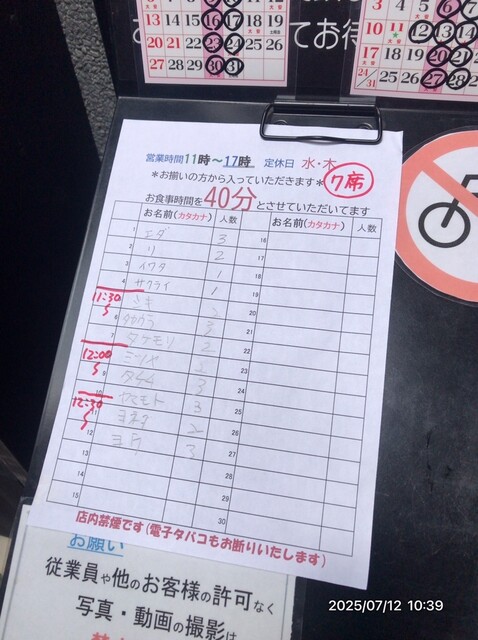 13 14 15 16 17 18 19
20 21 22 23 24 25 26
27 28 29 30 31
5 6 7
10 11 12 13 14
17 18 19 20 21
24/31 25 26 27 28
てお待
営業時間11時～17時 定休日 水・木
＊お揃いの方から入っていただきます＊
7席
お食事時間を40分とさせていただいてます
お名前(カタカナ) 人数 お名前(カタカナ) 人数
1 エダ 3 16
2 リ 2 17
3 イワタ 1 18
4 サクライ 1 19
11:30 ミキ 2 20
6 21
7 タケモリ 2 22
12:00 23
9 3 24
10 ヤマモト 3 25
12:30
11 ヨネダ 2 26
12 3 27
13 28
14 29
15 30
店内禁煙です(電子タバコもお断りいたします)
お願い
従業員や他のお客様の許可なく
写真・動画の撮影は
2025/07/12 10:39